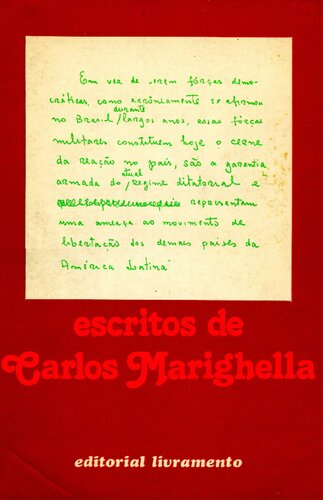 Em vez de serem fôrças demo-
cráticas, como errôneamente se afirmou
durante
no Brasil/largos anos, essas fôrças
militares constituem hoje o cerne
da reação no país, são a garantia
atual
armada do/regime ditatorial e
representam
uma ameaça ao movimento de
libertação dos demais países da
América Latina
escritos de
Carlos Marighella
editorial livramento